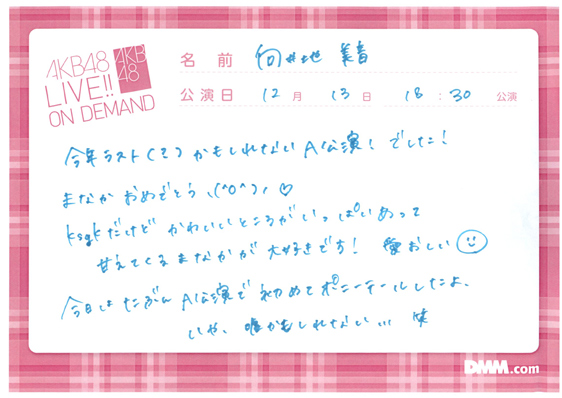 AKB48
LIVE!!
ON DEMAND
AKB
48
名前 向井地 美音
公演日 12月 13日 18:30 公演
今年ラスト(?)かもしれないA公演!でした!
まなか おめでとう\(^o^)/ ♡
ksgkだけど かわいいところがいっぱいあって
甘えてくるまなかが大好きです! 愛おしい
今日はたぶんA公演で初めてポニーテールしたよ、
いや、嘘かもしれない… 笑
DMM.com